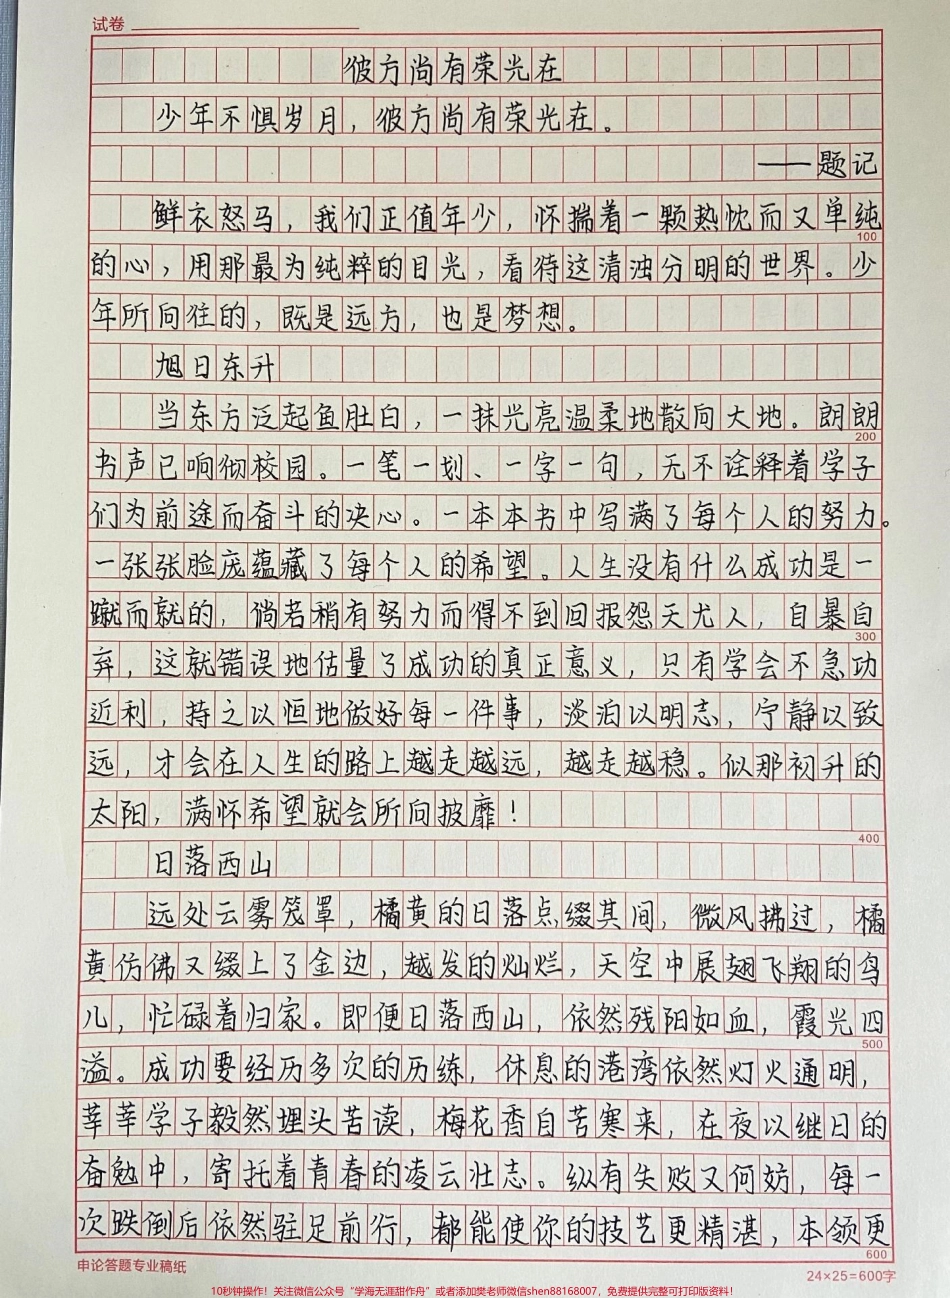 试卷
彼方尚有荣光在
少年不惧岁月，彼方尚有荣光在。
——题记
鲜衣怒马，我们正值年少，怀揣着一颗热忱而又单纯
100
的心，用那最为纯粹的目光，看待这清浊分明的世界。少
年所向往的，既是远方，也是梦想。
旭日东升
当东方泛起鱼肚白，一抹光亮温柔地散向大地。朗朗
200
书声已响彻校园。一笔一划、一字一句，无不诠释着学子
们为前途而奋斗的决心。一本本书中写满了每个人的努力。
一张张脸庞蕴藏了每个人的希望。人生没有什么成功是一
蹴而就的，倘若稍有努力而得不到回报怨天尤人，自暴自
300
弃，这就错误地估量了成功的真正意义，只有学会不急功
近利，持之以恒地做好每一件事，淡泊以明志，宁静以致
远，才会在人生的路上越走越远，越走越稳。似那初升的
太阳，满怀希望就会所向披靡！
400
日落西山
远处云雾笼罩，橘黄的日落点缀其间，微风拂过，橘
黄仿佛又缀上了金边，越发的灿烂，天空中展翅飞翔的鸟
儿，忙碌着归家。即便日落西山，依然残阳如血，霞光四
500
溢。成功要经历多次的历练，休息的港湾依然灯火通明，
莘莘学子毅然埋头苦读，梅花香自苦寒来，在夜以继日的
奋勉中，寄托着青春的凌云壮志。纵有失败又何妨，每一
次跌倒后依然驻足前行，都能使你的技艺更精湛，本领更
600
申论答题专业稿纸
24×25=600字
10秒钟操作！关注微信公众号“学海无涯甜作舟”或者添加樊老师微信shen88168007，免费提供完整可打印版资料！